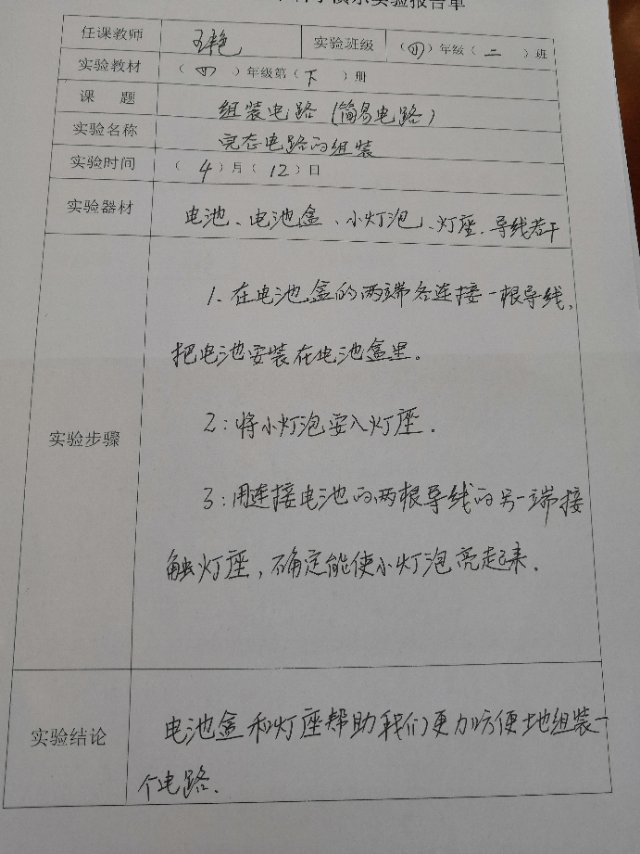 演示实验报告单
任课教师 王艳 实验班级 （四）年级（二）班
实验教材 （四）年级第（下）册
课 题 组装电路（简易电路）
实验名称 完态电路的组装
实验时间 （4）月（12）日
实验器材 电池、电池盒、小灯泡、灯座、导线若干
1. 在电池盒的两端各连接一根导线，
把电池安装在电池盒里。
实验步骤
2：将小灯泡安入灯座.
3：用连接电池的两根导线的另一端接
触灯座，确定能使小灯泡亮起来.
实验结论
电池盒和灯座帮助我们更加方便地组装一
个电路.